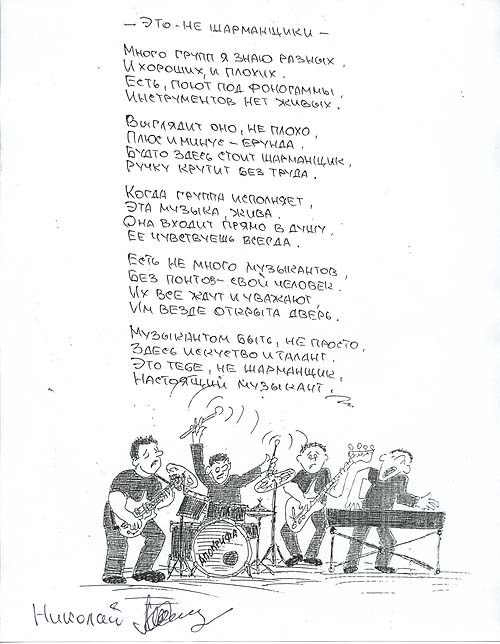 — ЭТО - НЕ ШАРМАНЩИКИ —
МНОГО ГРУПП Я ЗНАЮ РАЗНЫХ,
И ХОРОШИХ, И ПЛОХИХ.
ЕСТЬ, ПОЮТ ПОД ФОНОГРАММЫ,
ИНСТРУМЕНТОВ НЕТ ЖИВЫХ.
ВЫГЛЯДИТ ОНО, НЕ ПЛОХО,
ПЛЮС И МИНУС – ЕРУНДА.
БУДТО ЗДЕСЬ СТОИТ ШАРМАНЩИК,
РУЧКУ КРУТИТ БЕЗ ТРУДА.
КОГДА ГРУППА ИСПОЛНЯЕТ,
ЭТА МУЗЫКА, ЖИВА.
ОНА ВХОДИТ ПРЯМО В ДУШУ,
ЕЕ ЧУВСТВУЕШЬ ВСЕГДА.
ЕСТЬ НЕ МНОГО МУЗЫКАНТОВ,
БЕЗ ПОНТОВ – СВОЙ ЧЕЛОВЕК.
ИХ ВСЕ ЖДУТ И УВАЖАЮТ
ИМ ВЕЗДЕ ОТКРЫТА ДВЕРЬ.
МУЗЫКАНТОМ БЫТЬ, НЕ ПРОСТО,
ЗДЕСЬ ИСКУСТВО И ТАЛАНТ.
ЭТО ТЕБЕ, НЕ ШАРМАНЩИК,
НАСТОЯЩИЙ МУЗЫКАНТ.
АПОКРИФА
НИКОЛАЙ